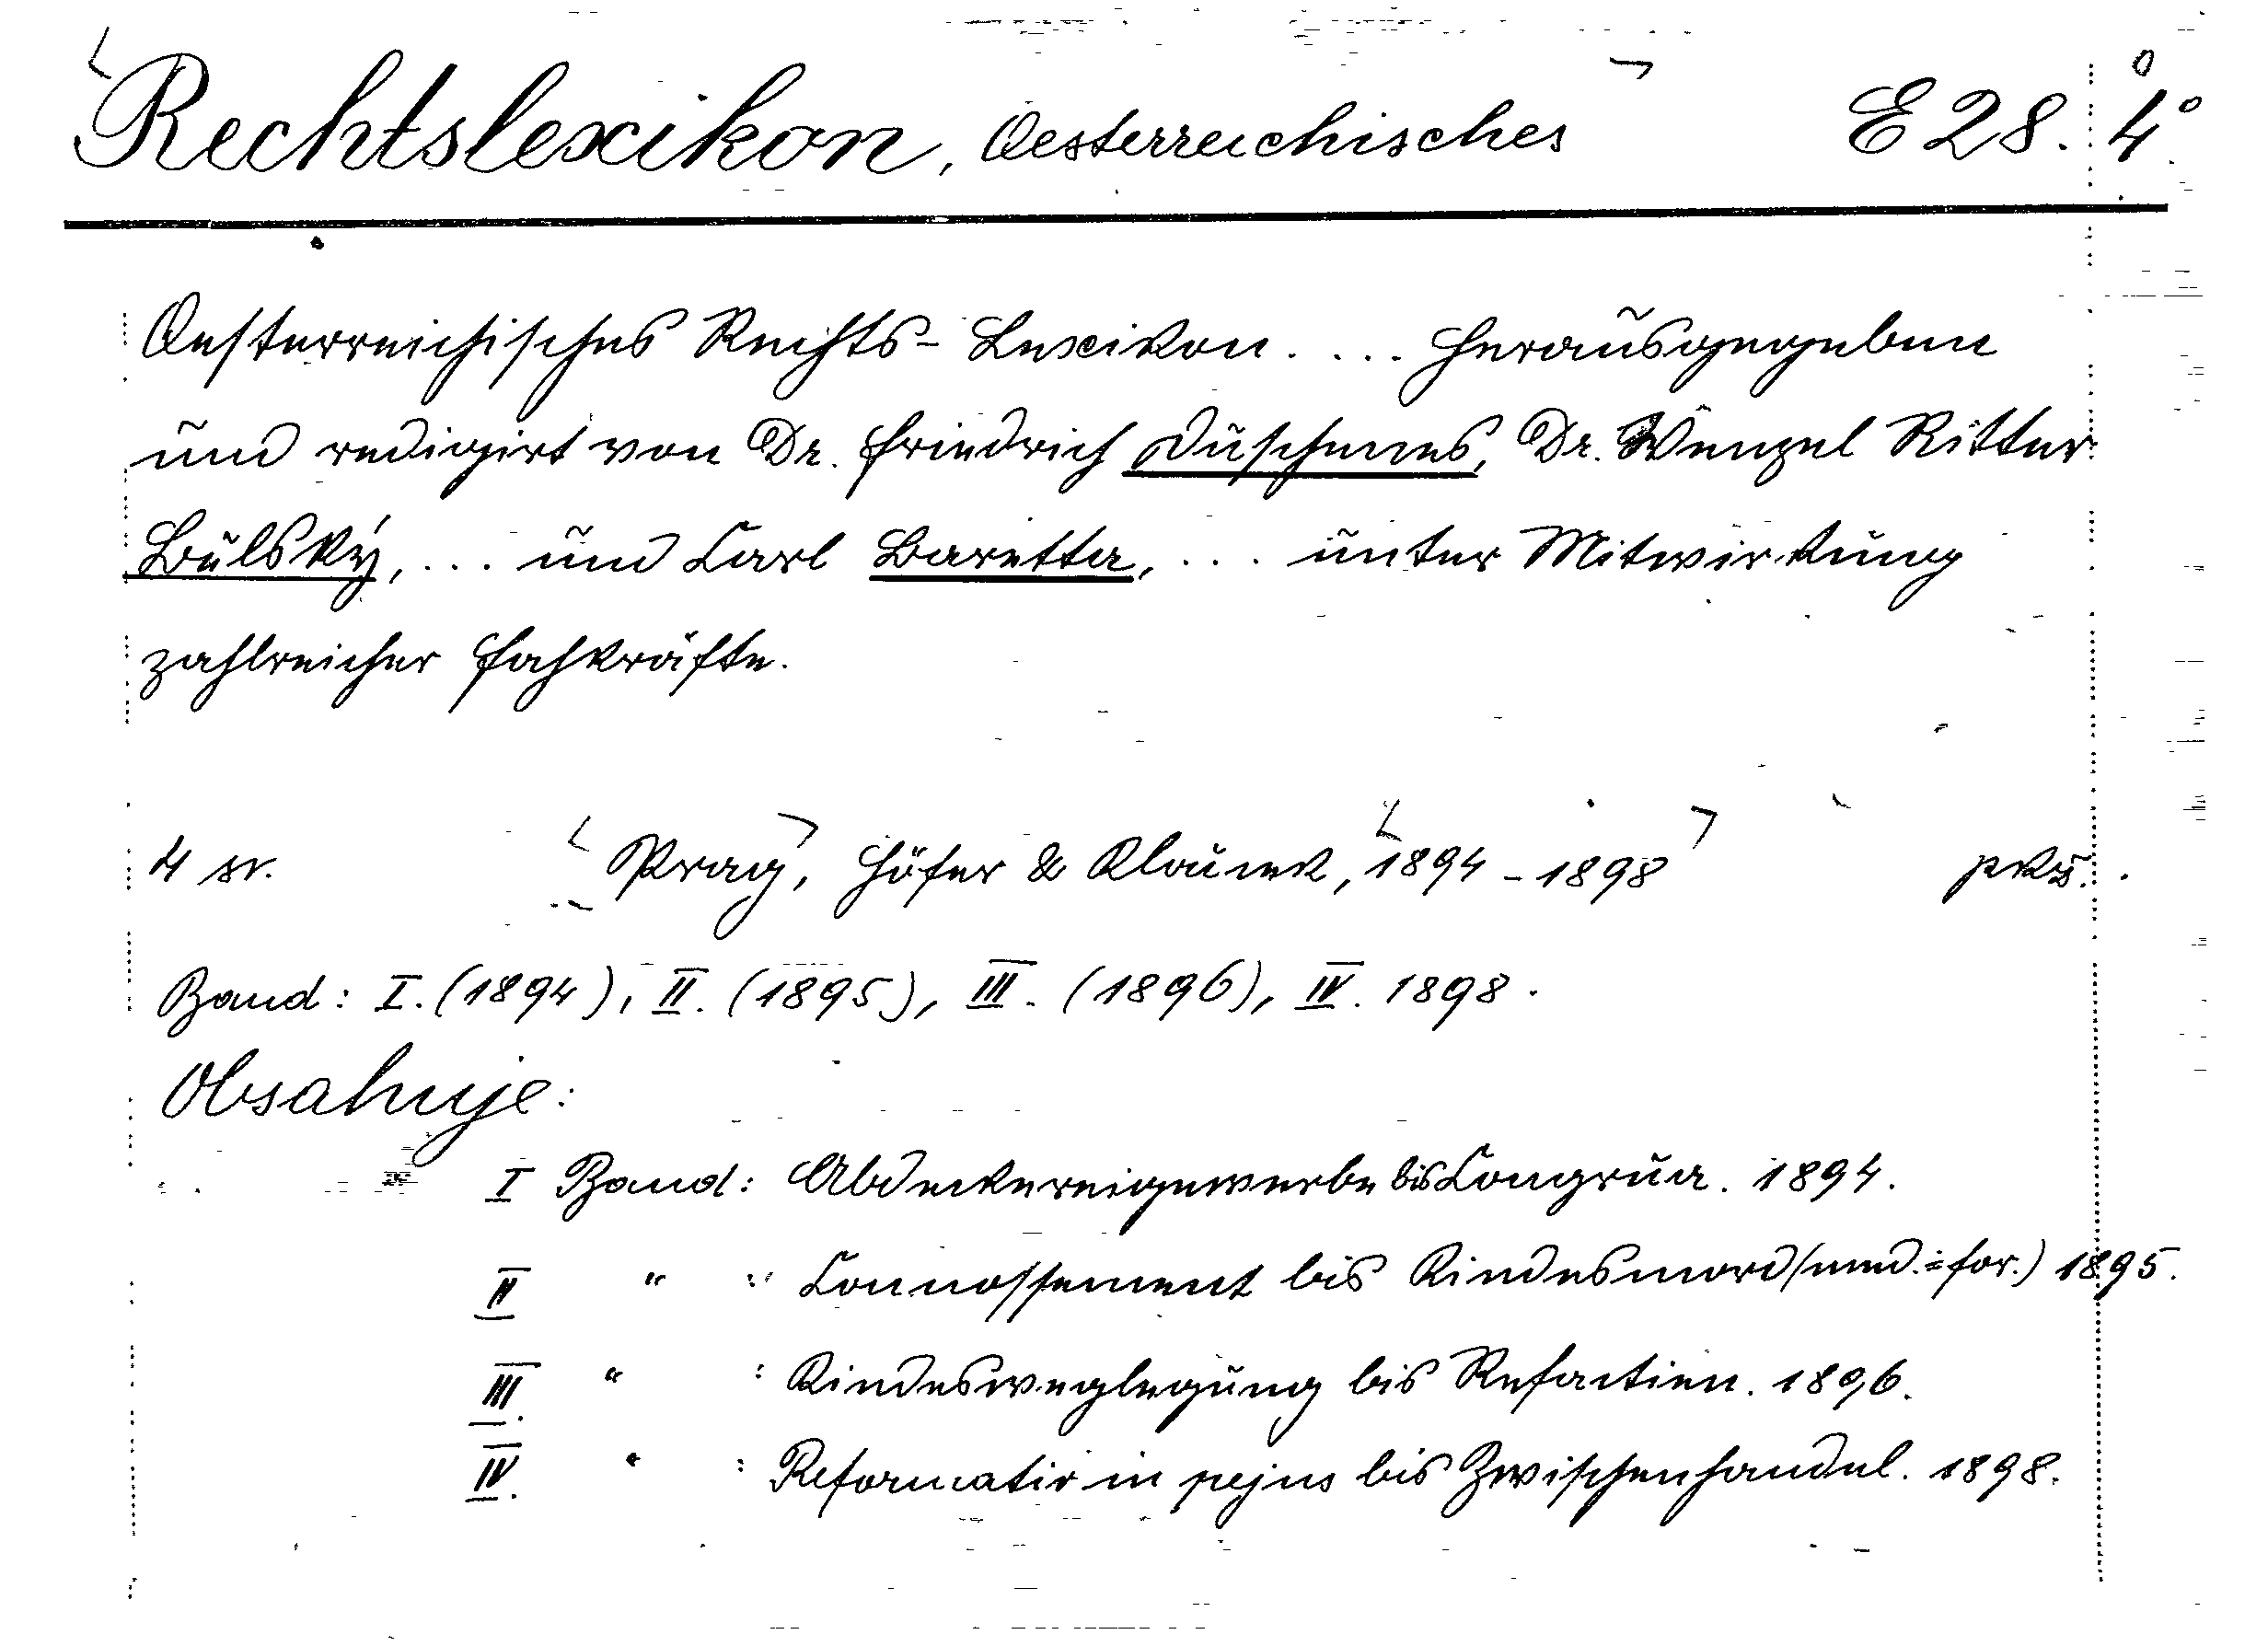 Rechtslexikon, Oesterreichisches E 28. 4°
Oesterreichisches Rechts-Lexikon. ... Herausgegeben
und redigirt von Dr. Friedrich Duschenes, Dr. Wenzel Ritter
Bělský, ... und Carl Baretta, ... unter Mitwirkung
zahlreicher Fachkräfte.
4 sv. Prag, Höfer & Klouček, 1894 - 1898
Band: I. (1894), II. (1895), III. (1896), IV. 1898.
Obsahuje:
I Band: Abdeckereigewerbe bis Congrua. 1894.
II " " Connossement bis Kindesmord (med.=for.) 1895.
III. " : Kindesweglegung bis Refactien. 1896.
IV. " : Reformatio in pejus bis Zwischenhandel. 1898.